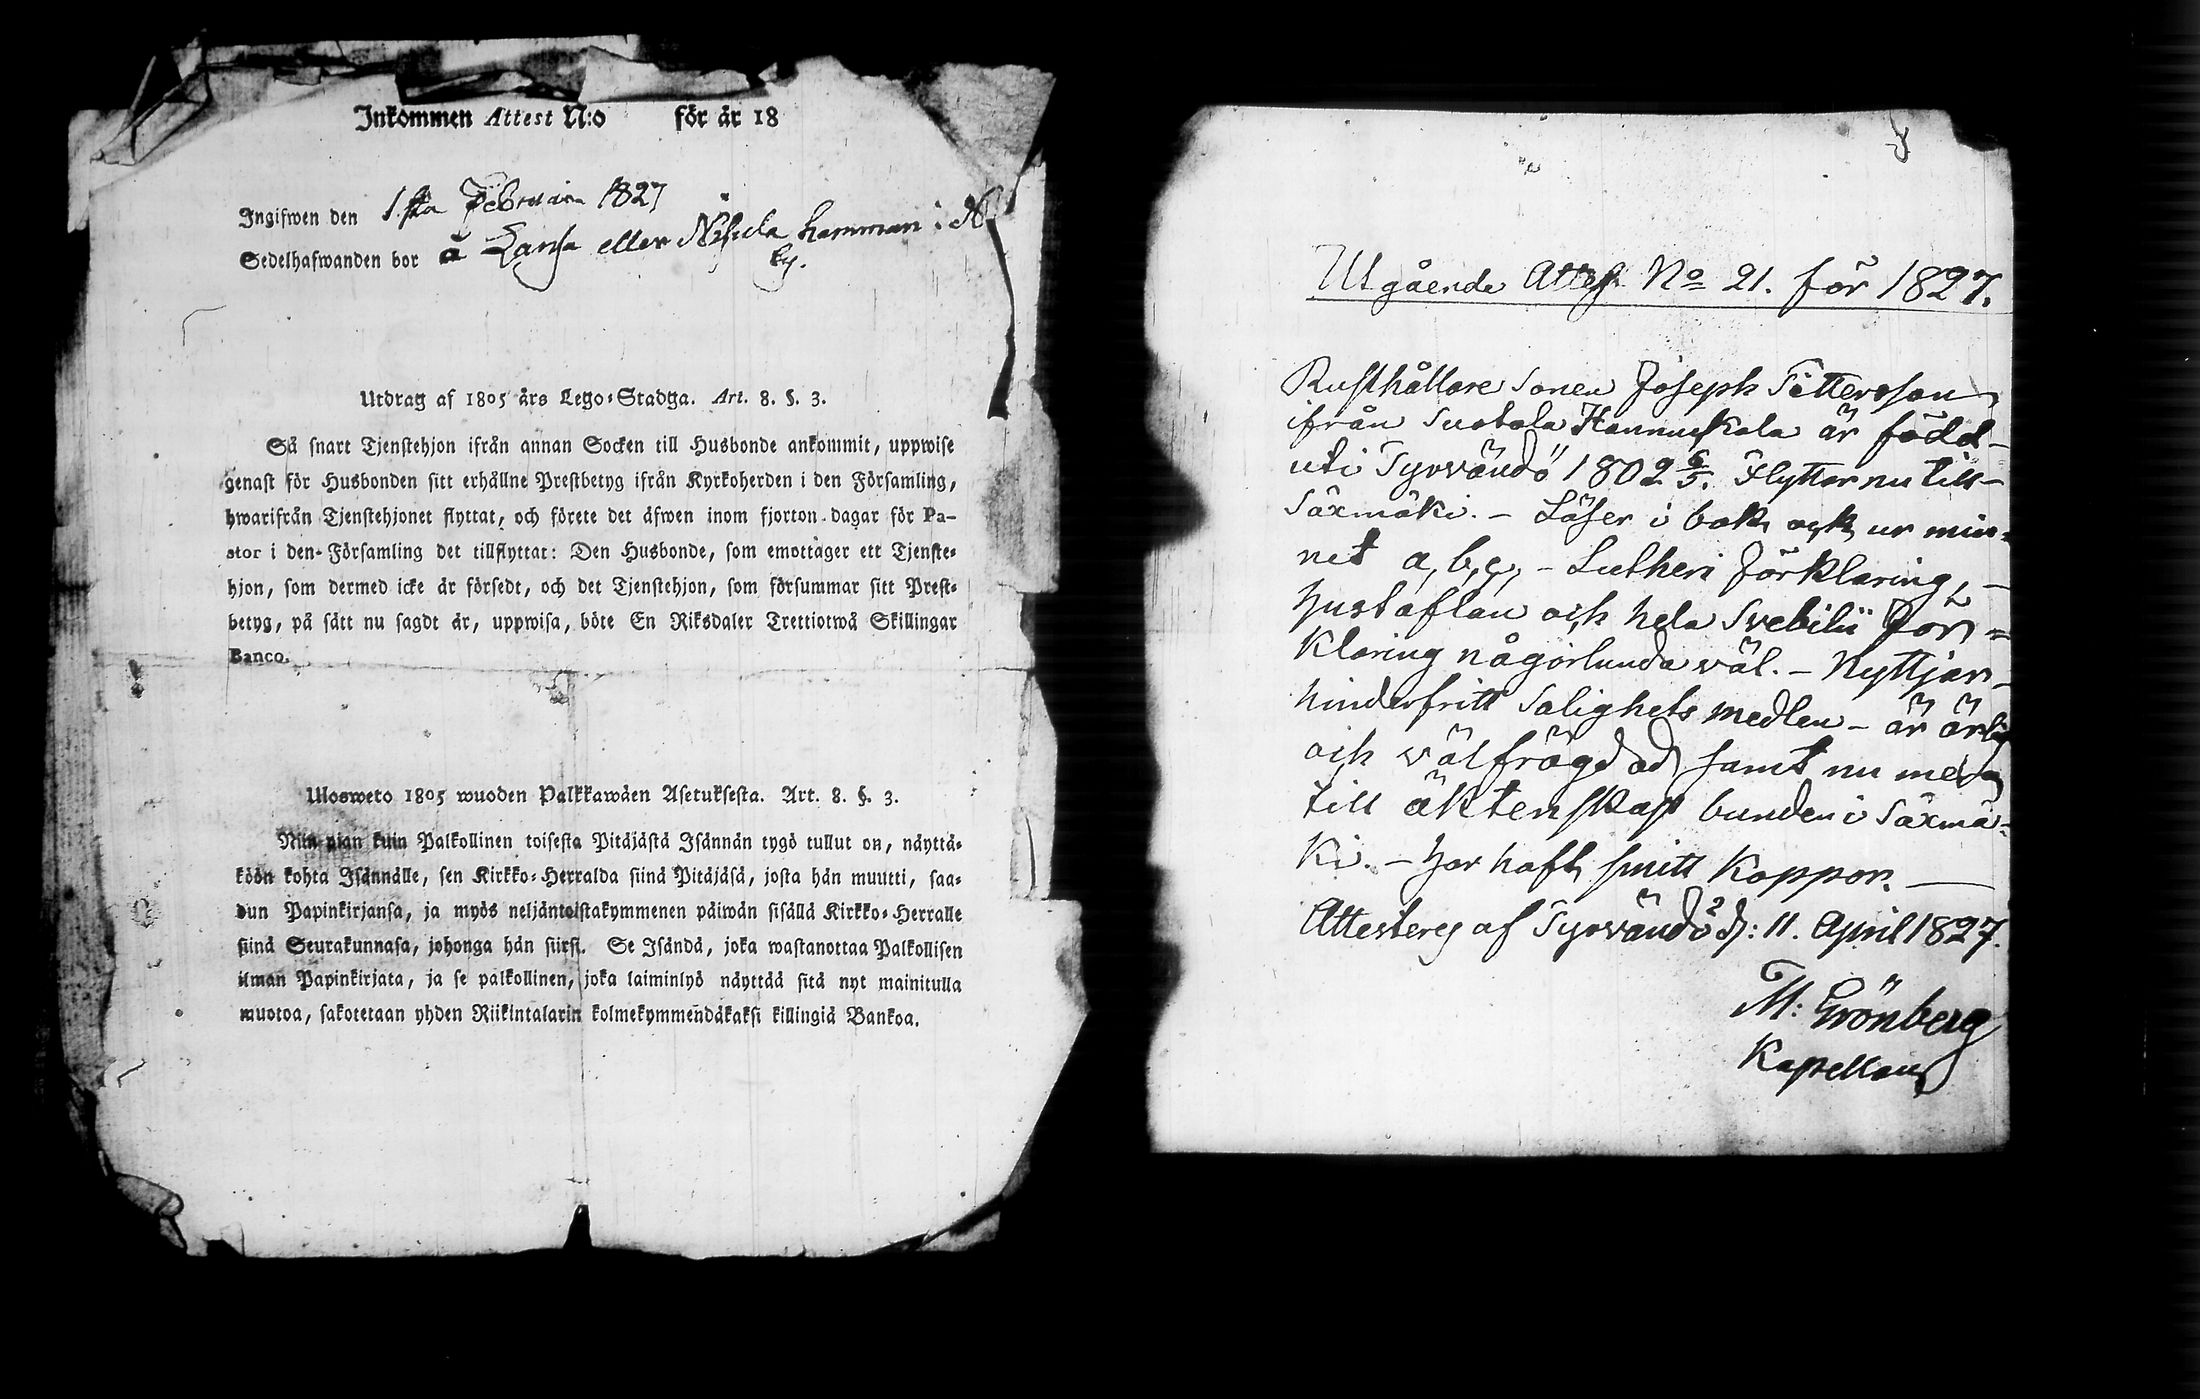 Inkommen Attest N:o för år 18
Ingifwen den 1sta Februarii 1827
Sedelhafwanden bor å Lansa eller Nisula hemman i
by.
Utdrag af 1805 års Lego-Stadga. Art. 8. §. 3.
Så snart Tjenstehjon ifrån annan Socken till Husbonde ankommit, uppwise
genast för Husbonden sitt erhållne Prestbetyg ifrån Kyrkoherden i den Församling,
hwarifrån Tjenstehjonet flyttat, och förete det äfwen inom fjorton dagar för Pa-
stor i den Församling det tillflyttat: Den Husbonde, som emottager ett Tjenste-
hjon, som dermed icke är försedt, och det Tjenstehjon, som försummar sitt Prest-
betyg, på sätt nu sagdt är, uppwisa, böte En Riksdaler Trettiotwå Skillingar
Banco.
Ulosweto 1805 wuoden Palkkawäen Asetuksesta. Art. 8. §. 3.
Niin pian kuin Palkollinen toisesta Pitäjästä Isännän tygö tullut on, näyttä-
köön kohta Isännälle, sen Kirkko-Herralda siinä Pitäjäsä, josta hän muutti, saa-
dun Papinkirjansa, ja myös neljäntoistakymmenen päiwän sisällä Kirkko-Herralle
siinä Seurakunnasa, johonga hän siirsi. Se Isändä, joka wastanottaa Palkollisen
ilman Papinkirjata, ja se palkollinen, joka laiminlyö näyttää sitä nyt mainitulla
muotoa, sakotetaan yhden Riikintalarin kolmekymmendäkaksi killingiä Bankoa.
Utgående Attest No 21. för 1827.
Rusthållare Sonen Joseph Pettersson
ifrån Suotala Hannuskala är född
uti Tyrvändö 1802 6/5. Flyttar nu till
Säxmäki. - Läser i bok och ur min=
net a, b, c, - Lutheri Förklaring, -
Hustaflan och hela Svebilii För=
klaring någorlunda wäl. - Nyttjar
hinderfritt Salighets medlen - är ärlig
och wälfrägdad samt nu mera
till äktenskap bunden i Säxmä-
ki. - Har haft smitt Koppor. -
Attesterg af Tyrvändö d: 11. April 1827.
M: Grönberg
Kapellan